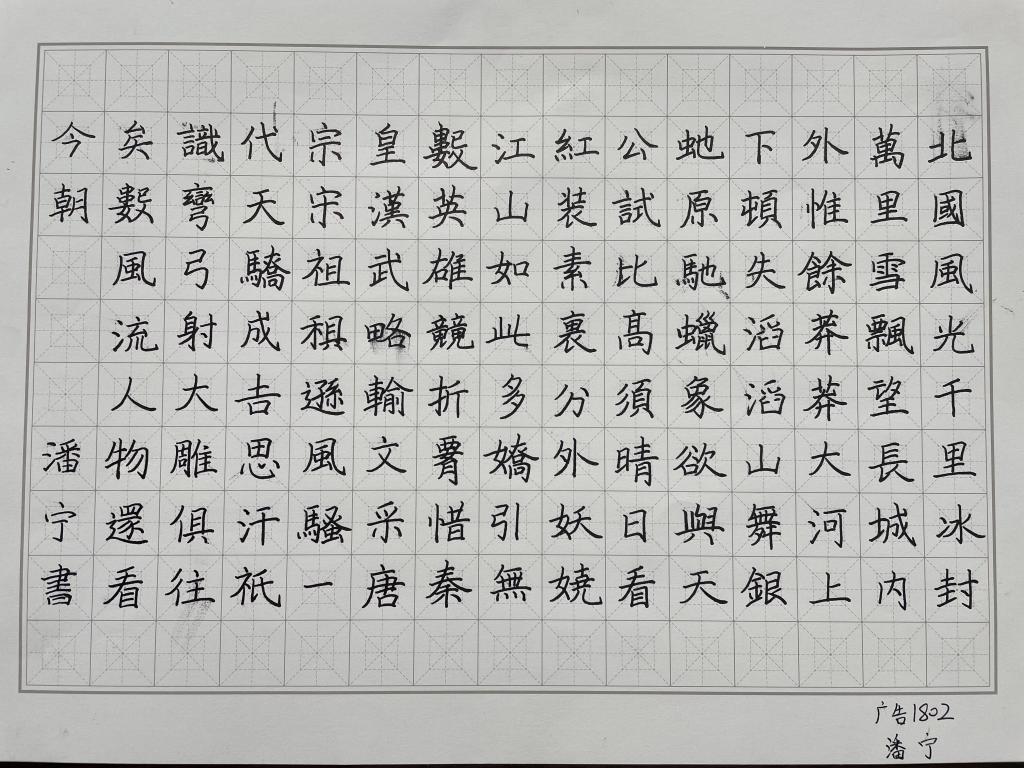 北國風光千里冰封
萬里雪飄望長城内
外惟餘莽莽大河上
下頓失滔滔山舞銀
虵原馳蠟象欲與天
公試比高須晴日看
紅装素裹分外妖嬈
江山如此多嬌引無
數英雄競折惜秦
皇漢武略輸文采唐
宗宋祖遜風騷一
代天驕成吉思汗祇
識彎弓射大雕俱往
矣數風流人物還看
今朝 潘宁書
广告1802
潘宁